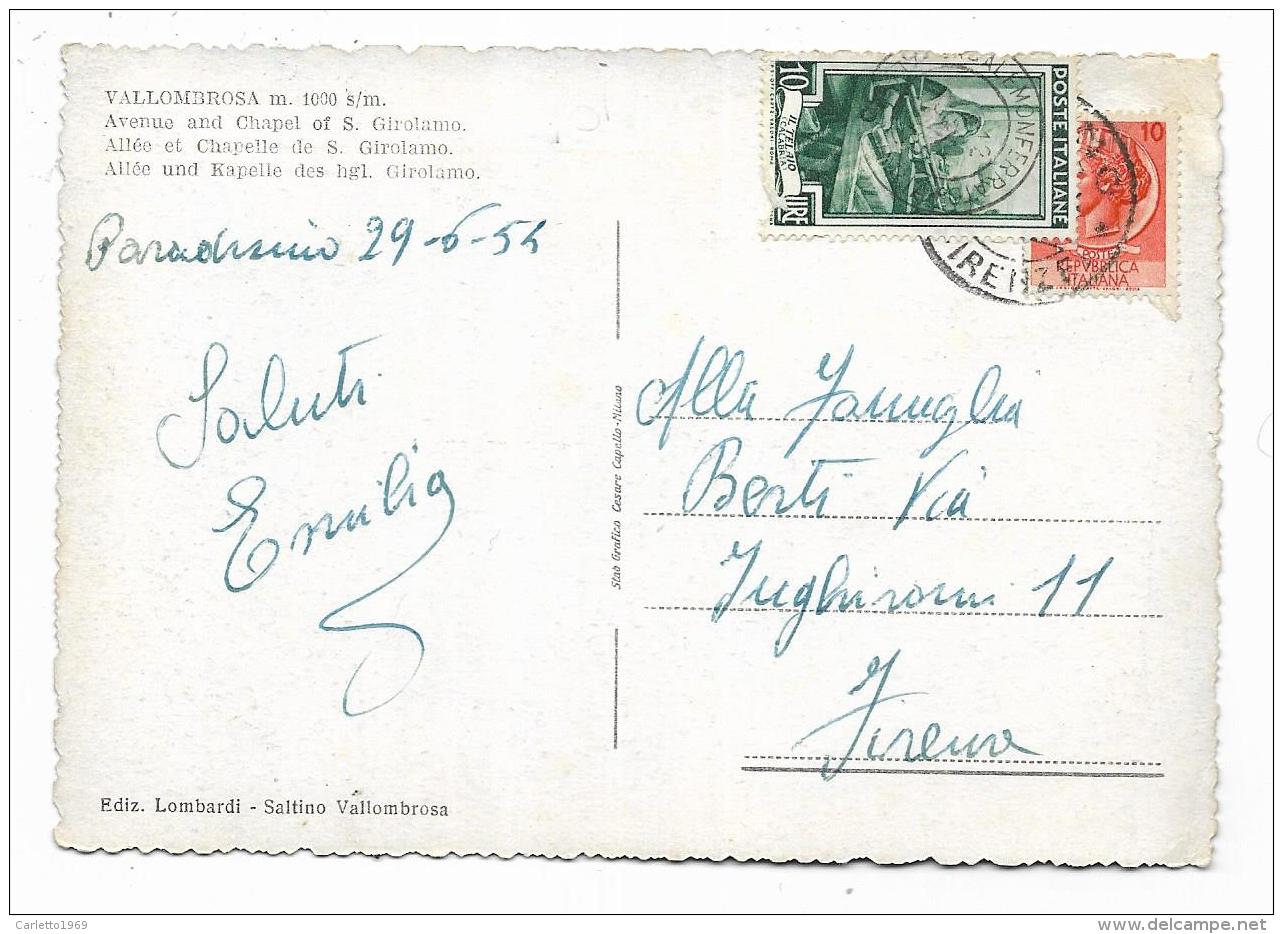 VALLOMBROSA m. 1000 s/m.
Avenue and Chapel of S. Girolamo.
Allée et Chapelle de S. Girolamo.
Allée und Kapelle des hgl. Girolamo.
Paradisino 29-6-54
Saluti
Emilia
Ediz. Lombardi - Saltino Vallombrosa
Stab Grafico Cesare Capello-Milano
10
IL TELAIO
CALABRIA
LIRE
POSTE ITALIANE
10
POSTE
REPVBBLICA
ITALIANA
Alla Famiglia
Berti Via
Inghirami 11
Firenze
Carletto1969
delcampe.net